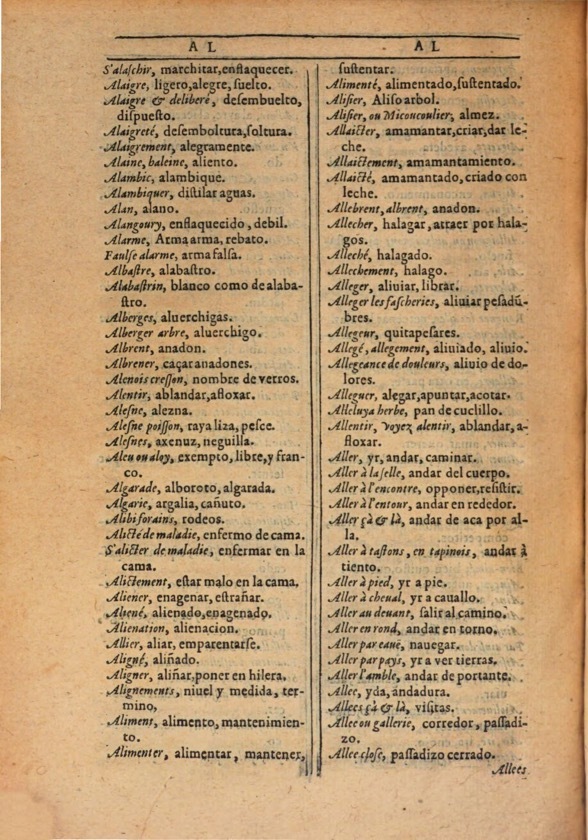 A L
S'alaſchir, marchitar, enflaquecer.
Alaigre, ligero, alegre, ſuelto.
Alaigre & deliberé, deſembuelto,
diſpueſto.
Alaigreté, deſemboltura, ſoltura.
Alaigrement, alegramente.
Alaine, baleine, aliento.
Alambic, alambique.
Alambiquer, diſtilar aguas.
Alan, alano.
Alangoury, enflaquecido, debil.
Alarme, Arma arma, rebato.
Faulſe alarme, arma falſa.
Albaſtre, alabaſtro.
Alabaſtrin, blanco como de alaba-
ſtro.
Alberges, aluerchigas.
Alberger arbre, aluerchigo.
Albrent, anadon.
Albrener, caçar anadones.
Alenois creſſon, nombre de verros.
Alentir, ablandar, afloxar.
Aleſne, alezna.
Aleſne poiſſon, raya liza, peſce.
Aleſnes, axenuz, neguilla.
Aleu ou aloy, exempto, libre, y fran-
co.
Algarade, alboroto, algarada.
Algarie, argalia, cañuto.
Alibi forains, rodeos.
Alicté de maladie, enfermo de cama.
S'alicter de maladie, enfermar en la
cama.
Alictement, eſtar malo en la cama.
Aliener, enagenar, eſtrañar.
Aliené, alienado, enagenado.
Alienation, alienacion.
Allier, aliar, emparentarſe.
Aligné, aliñado.
Aligner, aliñar, poner en hilera.
Alignements, niuel y medida, ter-
mino,
Aliment, alimento, mantenimien-
to.
Alimenter, alimentar, mantener,
A L
ſuſtentar.
Alimenté, alimentado, ſuſtentado.
Aliſier, Aliſo arbol.
Aliſier, ou Micoucoulier, almez.
Allaicter, amamantar, criar, dar le-
che.
Allaictement, amamantamiento.
Allaicté, amamantado, criado con
leche.
Allebrent, albrent, anadon.
Allecher, halagar, atraer por hala-
gos.
Alleché, halagado.
Allechement, halago.
Alleger, aliuiar, librar.
Alleger les faſcheries, aliuiar peſadũ-
bres.
Allegeur, quitapeſares.
Allegé, allegement, aliuiado, aliuio.
Allegeance de douleurs, aliuio de do-
lores.
Alleguer, alegar, apuntar, acotar.
Alleluya herbe, pan de cuclillo.
Allentir, voyez alentir, ablandar, a-
floxar.
Aller, yr, andar, caminar.
Aller à la ſelle, andar del cuerpo.
Aller à l'encontre, opponer, reſiſtir.
Aller à l'entour, andar en rededor.
Aller çà & là, andar de aca por al-
la.
Aller à taſtons, en tapinois, andar à
tiento.
Aller à pied, yr a pie.
Aller à cheual, yr a cauallo.
Aller au deuant, ſalir al camino.
Aller en rond, andar en torno.
Aller par eauë, nauegar.
Aller par pays, yr a ver tierras.
Aller l'amble, andar de portante.
Allee, yda, andadura.
Allees çà & là, viſitas.
Allee ou gallerie, corredor, paſſadi-
zo.
Allee cloſe, paſſadizo cerrado.
Allees